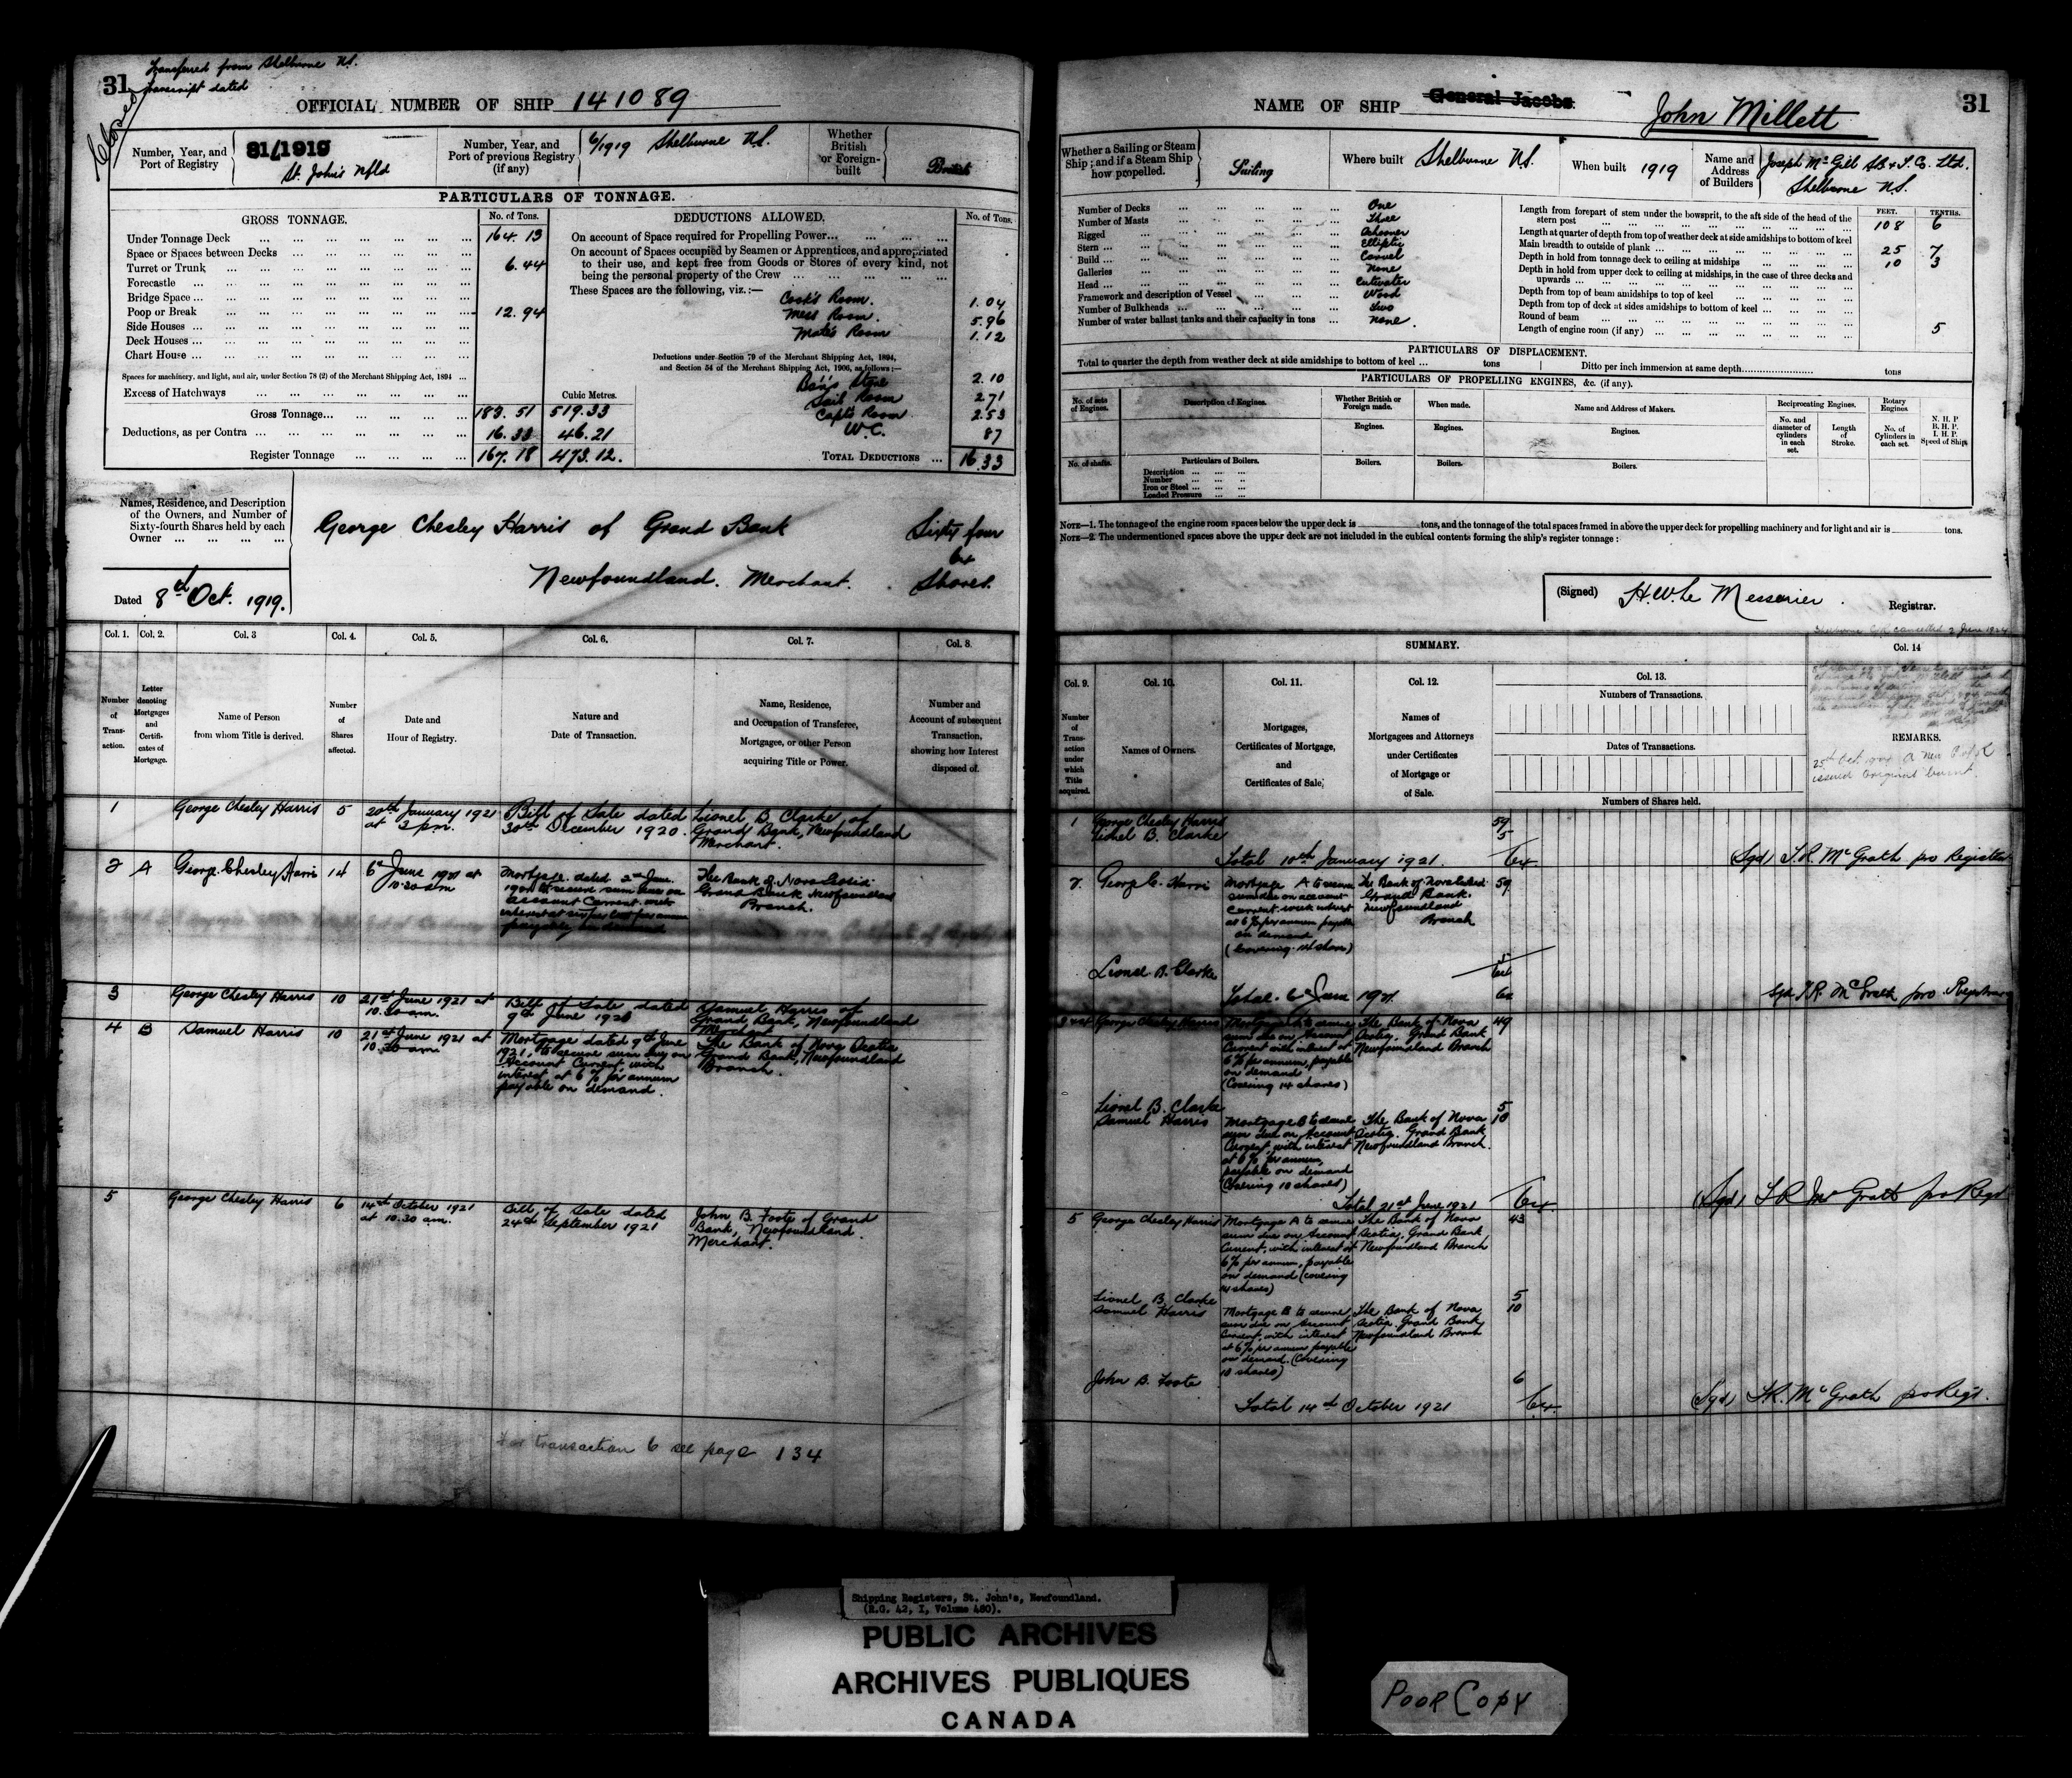 31
Transferred from Shelburne N.S.
Transcript dated
Closed
OFFICIAL NUMBER OF SHIP 141089
Number, Year, and Port of Registry
31/1919
St. John's Nfld
Number, Year, and Port of previous Registry (if any)
6/1919 Shelburne N.S.
Whether British or Foreign-built
British
PARTICULARS OF TONNAGE.
GROSS TONNAGE. No. of Tons.
Under Tonnage Deck ... 164.13
Space or Spaces between Decks ...
Turret or Trunk ... 6.44
Forecastle ...
Bridge Space ...
Poop or Break ... 12.94
Side Houses ...
Deck Houses ...
Chart House ...
Spaces for machinery, and light, and air, under Section 78 (2) of the Merchant Shipping Act, 1894 ...
Excess of Hatchways ...
Cubic Metres.
Gross Tonnage... 183.51 519.33
Deductions, as per Contra ... 16.33 46.21
Register Tonnage ... 167.18 473.12.
DEDUCTIONS ALLOWED. No. of Tons.
On account of Space required for Propelling Power...
On account of Spaces occupied by Seamen or Apprentices, and appropriated
to their use, and kept free from Goods or Stores of every kind, not
being the personal property of the Crew ...
These Spaces are the following, viz.:—
Cook's Room. 1.04
Mess Room. 5.96
Mate's Room 1.12
Deductions under Section 79 of the Merchant Shipping Act, 1894,
and Section 54 of the Merchant Shipping Act, 1906, as follows:—
Bo's'n's Store 2.10
Sail Room 2.71
Capt's Room 2.53
W.C. 87
TOTAL DEDUCTIONS ... 16.33
Names, Residence, and Description
of the Owners, and Number of
Sixty-fourth Shares held by each
Owner ...
George Chesley Harris of Grand Bank Sixty four
64
Newfoundland. Merchant. Shares.
Dated 8th Oct. 1919.
Col. 1. Col. 2. Col. 3 Col. 4. Col. 5. Col. 6. Col. 7. Col. 8.
Number of Transaction.
Letter denoting Mortgages and Certificates of Mortgage.
Name of Person from whom Title is derived.
Number of Shares affected.
Date and Hour of Registry.
Nature and Date of Transaction.
Name, Residence, and Occupation of Transferee, Mortgagee, or other Person acquiring Title or Power.
Number and Account of subsequent Transaction, showing how Interest disposed of.
1 George Chesley Harris 5 20th January 1921 at 3 pm. Bill of Sale dated 30th December 1920. Lionel B. Clarke, of Grand Bank, Newfoundland Merchant.
2 A George Chesley Harris 14 6th June 1921 at 10.30 am Mortgage dated 2nd June 1921 to secure sum due on account current with interest at six per cent per annum payable on demand The Bank of Nova Scotia Grand Bank Newfoundland Branch.
3 George Chesley Harris 10 21st June 1921 at 10.30 am. Bill of Sale dated 9th June 1921 Samuel Harris of Grand Bank, Newfoundland Merchant
4 B Samuel Harris 10 21st June 1921 at 10.30 am. Mortgage dated 9th June 1921, to secure sum due on Account Current, with interest at 6% per annum payable on demand. The Bank of Nova Scotia Grand Bank, Newfoundland Branch.
5 George Chesley Harris 6 14th October 1921 at 10.30 am. Bill of Sale dated 24th September 1921 John B. Foote of Grand Bank, Newfoundland. Merchant.
For transaction 6 see page 134
NAME OF SHIP General Jacobs John Millett
31
Whether a Sailing or Steam Ship; and if a Steam Ship how propelled.
Sailing
Where built Shelburne N.S.
When built 1919
Name and Address of Builders
Joseph McGill S.B. & T. Co. Ltd.
Shelburne N.S.
Number of Decks ... One
Number of Masts ... Three
Rigged ... Schooner
Stern ... Elliptic
Build ... Carvel
Galleries ... None
Head ... Cutwater
Framework and description of Vessel ... Wood
Number of Bulkheads ... Two
Number of water ballast tanks and their capacity in tons ... None.
FEET. TENTHS.
Length from forepart of stem under the bowsprit, to the aft side of the head of the stern post ... 108 6
Length at quarter of depth from top of weather deck at side amidships to bottom of keel
Main breadth to outside of plank ... 25 7
Depth in hold from tonnage deck to ceiling at midships ... 10 3
Depth in hold from upper deck to ceiling at midships, in the case of three decks and upwards ...
Depth from top of beam amidships to top of keel ...
Depth from top of deck at sides amidships to bottom of keel ...
Round of beam ... 5
Length of engine room (if any) ...
PARTICULARS OF DISPLACEMENT.
Total to quarter the depth from weather deck at side amidships to bottom of keel ... tons Ditto per inch immersion at same depth... tons
PARTICULARS OF PROPELLING ENGINES, &c. (if any).
No. of sets of Engines. Description of Engines. Whether British or Foreign made. When made. Name and Address of Makers. Reciprocating Engines. Rotary Engines
Engines. Engines. Engines. No. and diameter of cylinders in each set. Length of Stroke. No. of Cylinders in each set. N. H. P B. H. P. I. H. P. Speed of Ship.
No. of shafts. Particulars of Boilers. Boilers. Boilers. Boilers.
Description ...
Number ...
Iron or Steel ...
Loaded Pressure ...
NOTE—1. The tonnage of the engine room spaces below the upper deck is tons, and the tonnage of the total spaces framed in above the upper deck for propelling machinery and for light and air is tons.
NOTE—2. The undermentioned spaces above the upper deck are not included in the cubical contents forming the ship's register tonnage:
(Signed) H.W. Le Messurier. Registrar.
Shelburne C/R cancelled 2 June 1924
SUMMARY. Col. 14
Col. 9. Col. 10. Col. 11. Col. 12. Col. 13.
Number of Transaction under which Title acquired.
Names of Owners.
Mortgages, Certificates of Mortgage, and Certificates of Sale.
Names of Mortgagees and Attorneys under Certificates of Mortgage or of Sale.
Numbers of Transactions.
Dates of Transactions.
Numbers of Shares held.
REMARKS.
25th Oct 1924 A new C of R
issued Original burnt.
1 George Chesley Harris 59
Lionel B. Clarke 5
Total 10th January 1921. 64 (Sgd) T.R. McGrath pro Registrar
2. George C. Harris Mortgage A to secure sum due on account current with interest at 6% per annum payable on demand (Covering 14 shares) The Bank of Nova Scotia Grand Bank. Newfoundland Branch 59
Lionel B. Clarke 5
64
Total. 6th June 1921. 64 Sgd T.R. McGrath pro Registrar
3 & 4 George Chesley Harris Mortgage A to secure sum due on Account Current with interest at 6% per annum, payable on demand (Covering 14 shares) The Bank of Nova Scotia, Grand Bank Newfoundland Branch 49
Lionel B. Clarke 5
Samuel Harris Mortgage B to secure sum due on Account Current, with interest at 6% per annum, payable on demand (Covering 10 shares) The Bank of Nova Scotia. Grand Bank Newfoundland Branch. 10
Total 21st June 1921 64 (Sgd) T R McGrath pro Regr
5 George Chesley Harris Mortgage A to secure sum due on Account Current, with interest at 6% per annum, payable on demand (covering 14 shares) The Bank of Nova Scotia, Grand Bank Newfoundland Branch 43
Lionel B. Clarke 5
Samuel Harris Mortgage B to secure sum due on Account Current, with interest at 6% per annum payable on demand. (Covering 10 shares) The Bank of Nova Scotia Grand Bank Newfoundland Branch 10
John B. Foote 6
Total 14th October 1921 64 (Sgd) T.R. McGrath pro Regr.
Shipping Registers, St. John's, Newfoundland.
(R.G. 42, I, Volume 480).
PUBLIC ARCHIVES
ARCHIVES PUBLIQUES
CANADA
POOR COPY